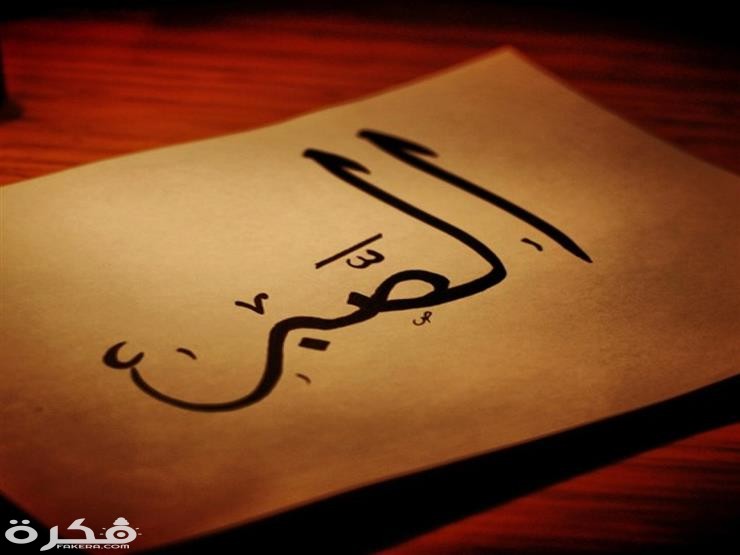 الصَّبر
فكرة
FAKERA.COM